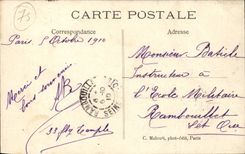 73
CARTE POSTALE
Correspondance
Adresse
Paris 5 Octobre 1910
Monsieur Batiste
Instructeur à
l'Ecole Militaire
Rambouillet
Set Oise
Merci et
bon souvenir
33 fbg Temple
RAMBOUILLET
C. Malcuit, phot-édit, Paris